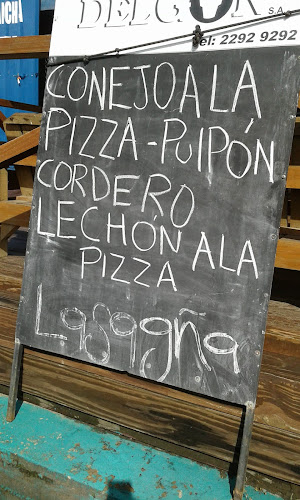 DELCOR S.A.
Tel: 2292 9292
CONEJO A LA
PIZZA - PUIPÓN
CORDERO
LECHÓN A LA
PIZZA
Lasagña